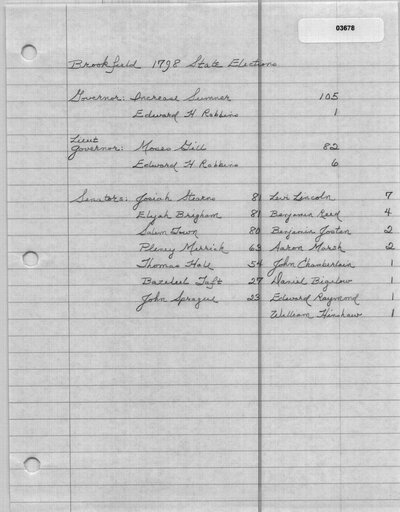 03678
Brookfield 1798 State Elections
Governor: Increase Sumner 105
Edward H Robbins 1
Lieut
Governor: Moses Gill 82
Edward H Robbins 6
Senators: Josiah Stearns 81 Levi Lincoln 7
Elijah Brigham 81 Benjamin Reed 4
Salem Town 80 Benjamin Josten 2
Pleney Merrick 63 Aaron Marsh 2
Thomas Hale 54 John Chamberlain 1
Bazeleel Taft 27 Daniel Bigelow 1
John Sprague 23 Edward Raymond 1
William Hinshaw 1